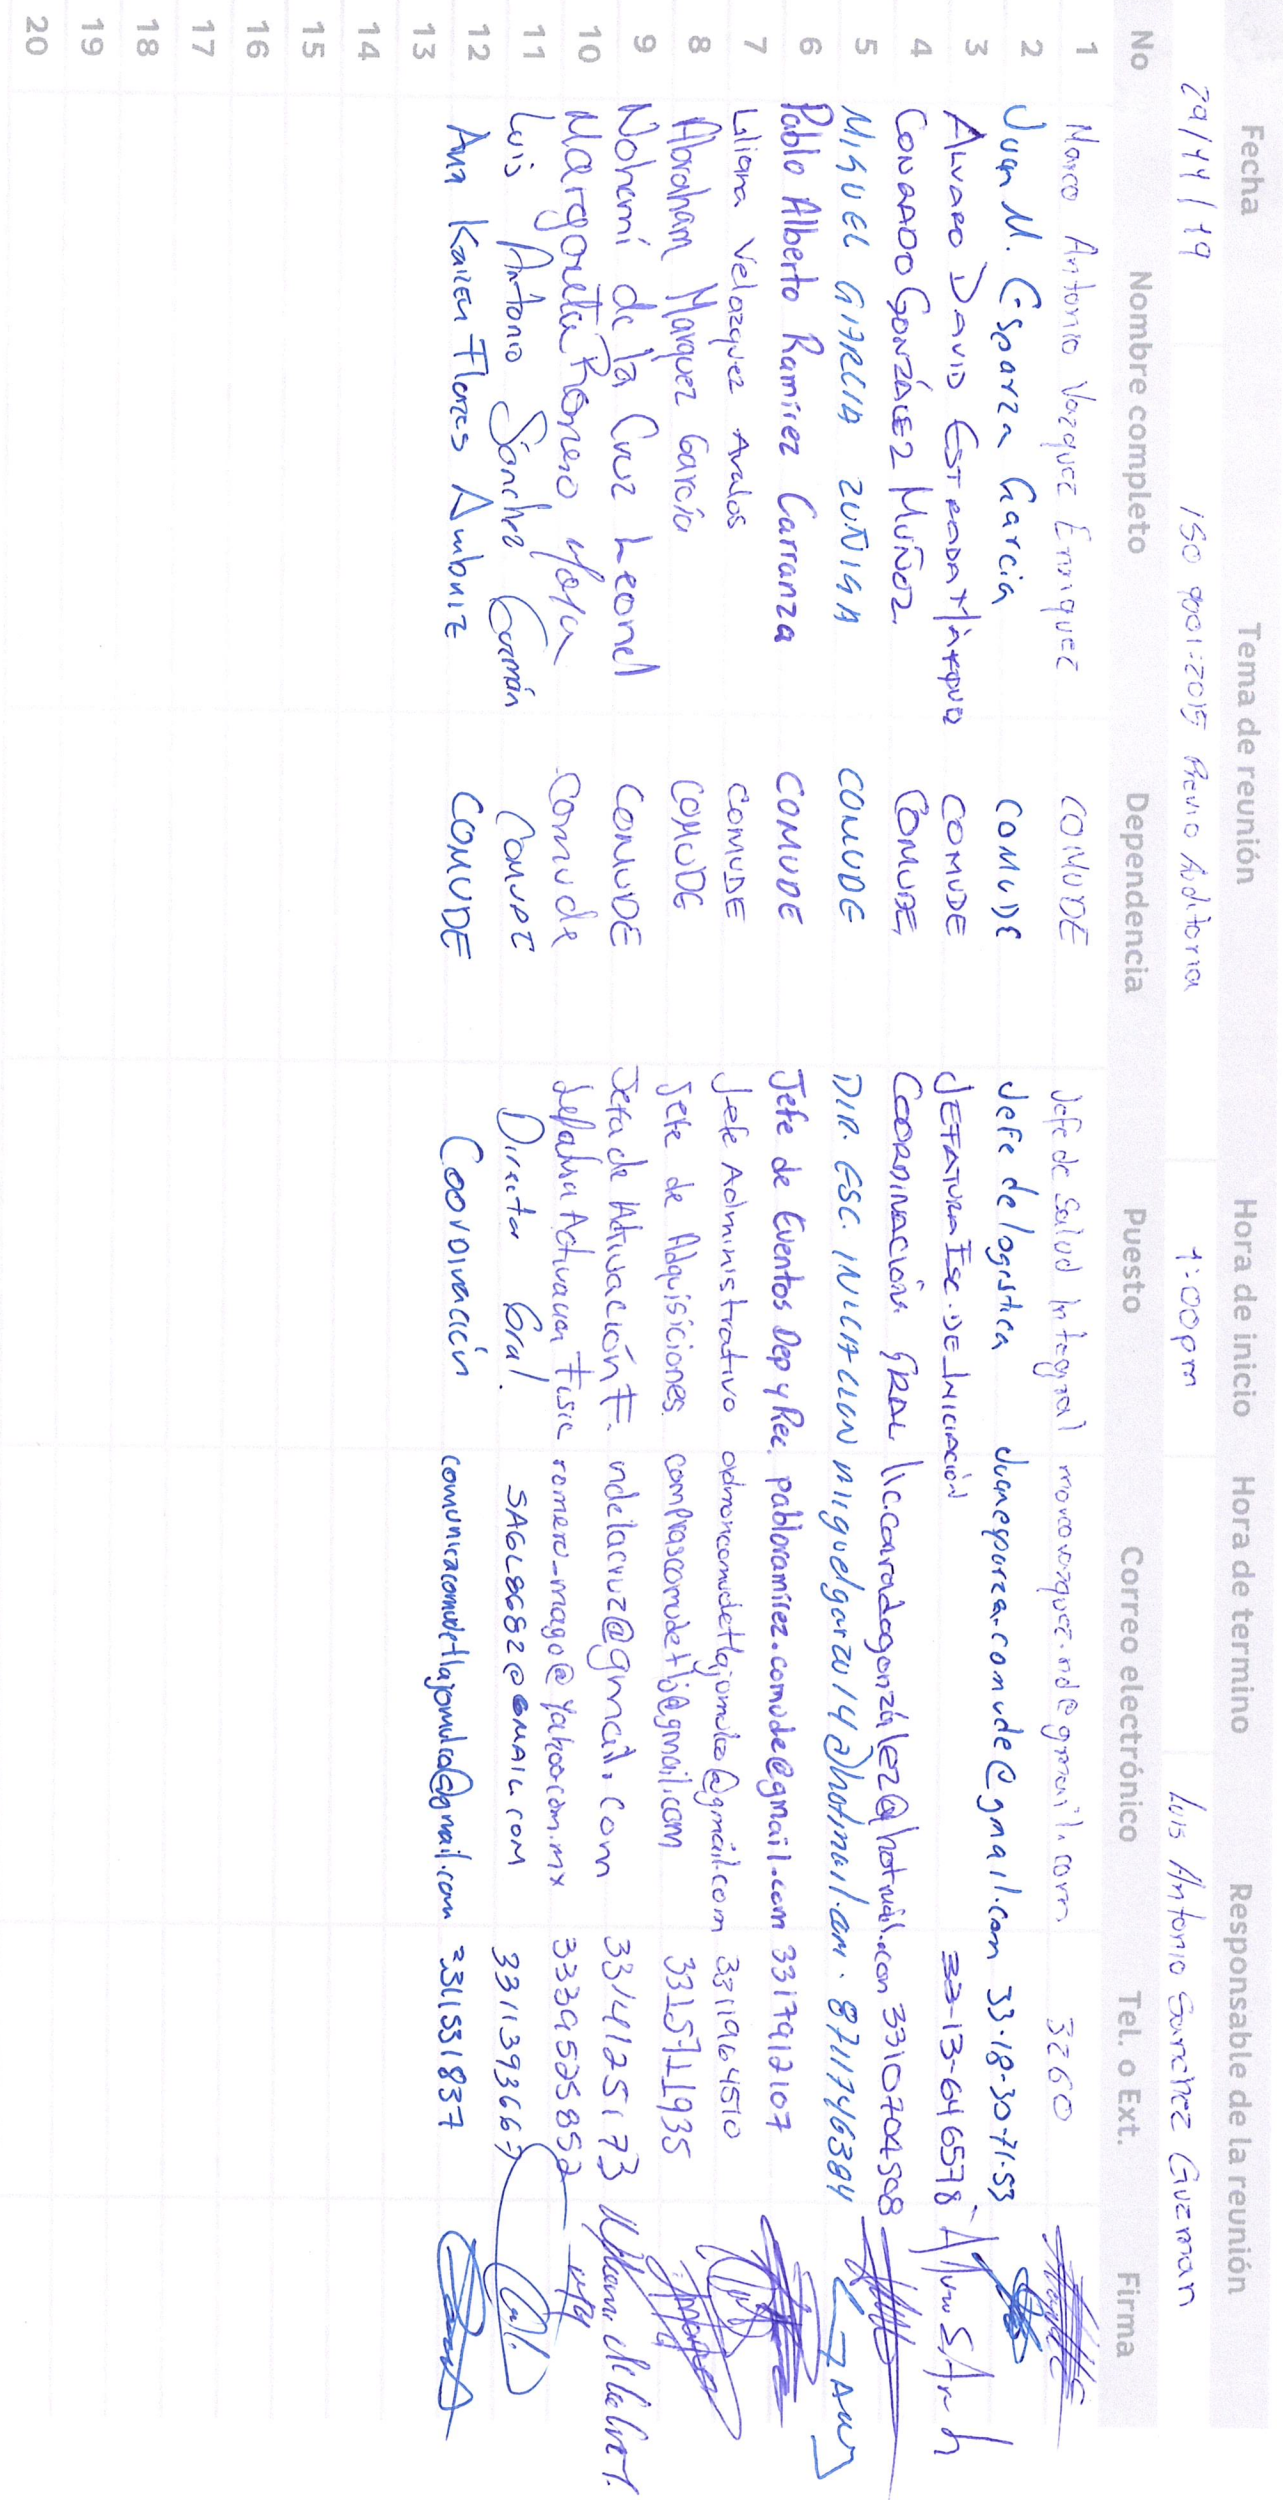 Fecha Tema de reunión Hora de inicio Hora de termino Responsable de la reunión
29/11/19 ISO 9001:2015 Previo Auditoria 1:00pm Luis Antonio Sanchez Guzman
No Nombre completo Dependencia Puesto Correo electrónico Tel. o Ext. Firma
1 Marco Antonio Vazquez Enriquez COMUDE Jefe de Salud Integral marcovazquez.nd@gmail.com 3260
2 Juan M. Esparza Garcia COMUDE Jefe de logistica juanesparza.comude@gmail.com 33-18-30-71-53
3 ALVARO DAVID ESTRADA MARQUEZ COMUDE JEFATURA ESC. DE INICIACIÓN 33-13-646578
4 CONRADO GONZÁLEZ MUÑOZ COMUDE COORDINACIÓN GRAL. lic.conradogonzalez@hotmail.com 3310704508
5 MIGUEL GARCIA ZUÑIGA COMUDE DIR. ESC. INICIACION miguelgarzu14@hotmail.com. 8711746384
6 Pablo Alberto Ramirez Carranza COMUDE Jefe de Eventos Dep y Rec. pabloramirez.comude@gmail.com 3317912107
7 Liliana Velazquez Avalos COMUDE Jefe Administrativo admoncomudetlajomulco@gmail.com 3311964510
8 Abraham Marquez García COMUDE Jefe de Adquisiciones. comprascomudetlj@gmail.com 3315711935
9 Nohemí de la Cruz Leonel COMUDE Jefa de Activación F. indelacruz@gmail.com 3314125173
10 Margarita Romero Mora Comude Jefatura Activacion Fisic romero_mago@yahoo.com.mx 3339525852
11 Luis Antonio Sánchez Guzmán COMUDE Director Gral. SAGL8682@GMAIL.COM 3311393667
12 Ana Karen Flores Ambriz COMUDE Coordinación comunicacomudetlajomulco@gmail.com 3311531837
13
14
15
16
17
18
19
20